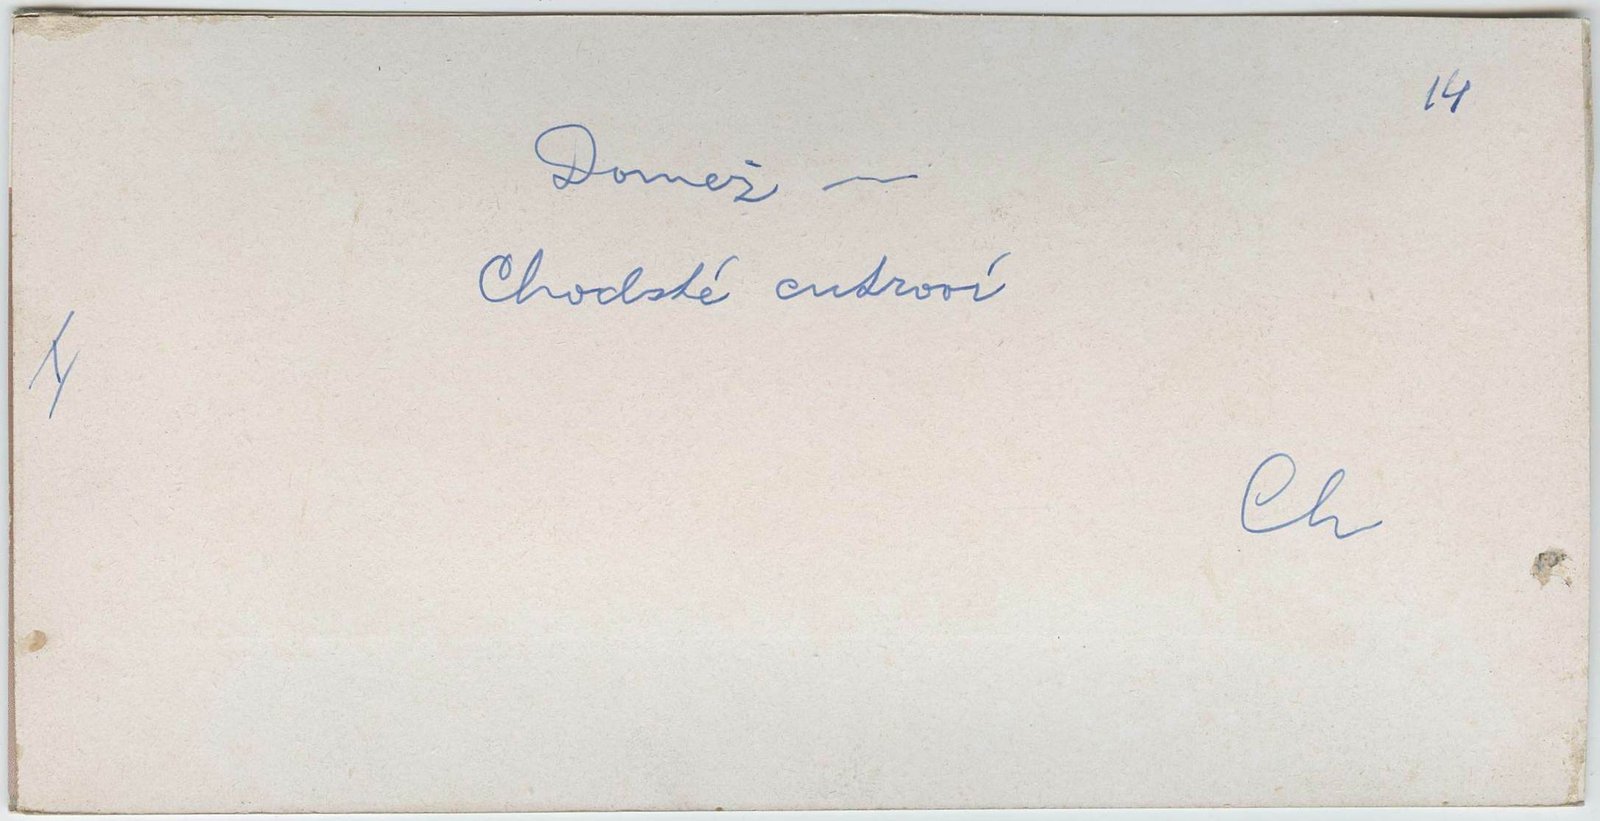 14
Domež —
Chodské cukroví
Ch